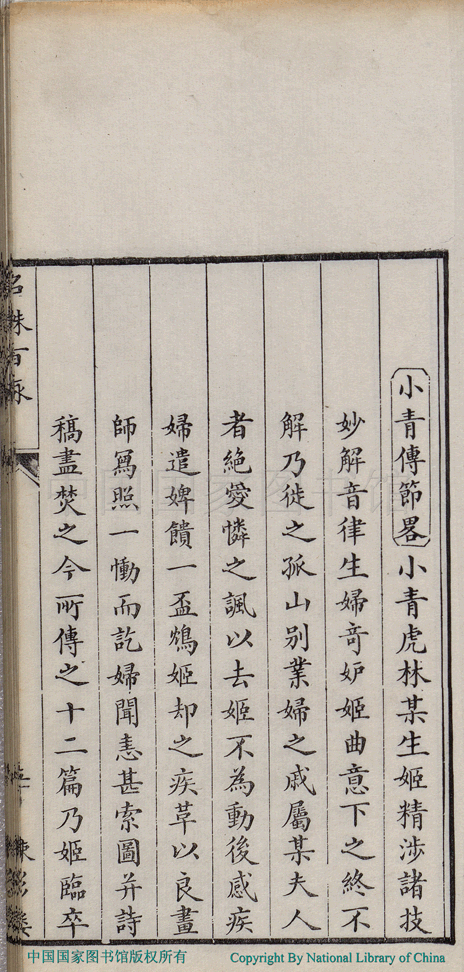 小青傳節畧小青虎林某生姬精涉諸技
妙解音律生婦竒妒姬曲意下之終不
解乃徙之孤山别業婦之戚屬某夫人
者絶愛憐之諷以去姬不為動後感疾
婦遣婢饋一盃鴆姬却之疾革以良畫
師寫照一慟而訖婦聞恚甚索圖并詩
稿盡焚之今所傳之十二篇乃姬臨卒
中国国家图书馆版权所有
Copyright By National Library of China